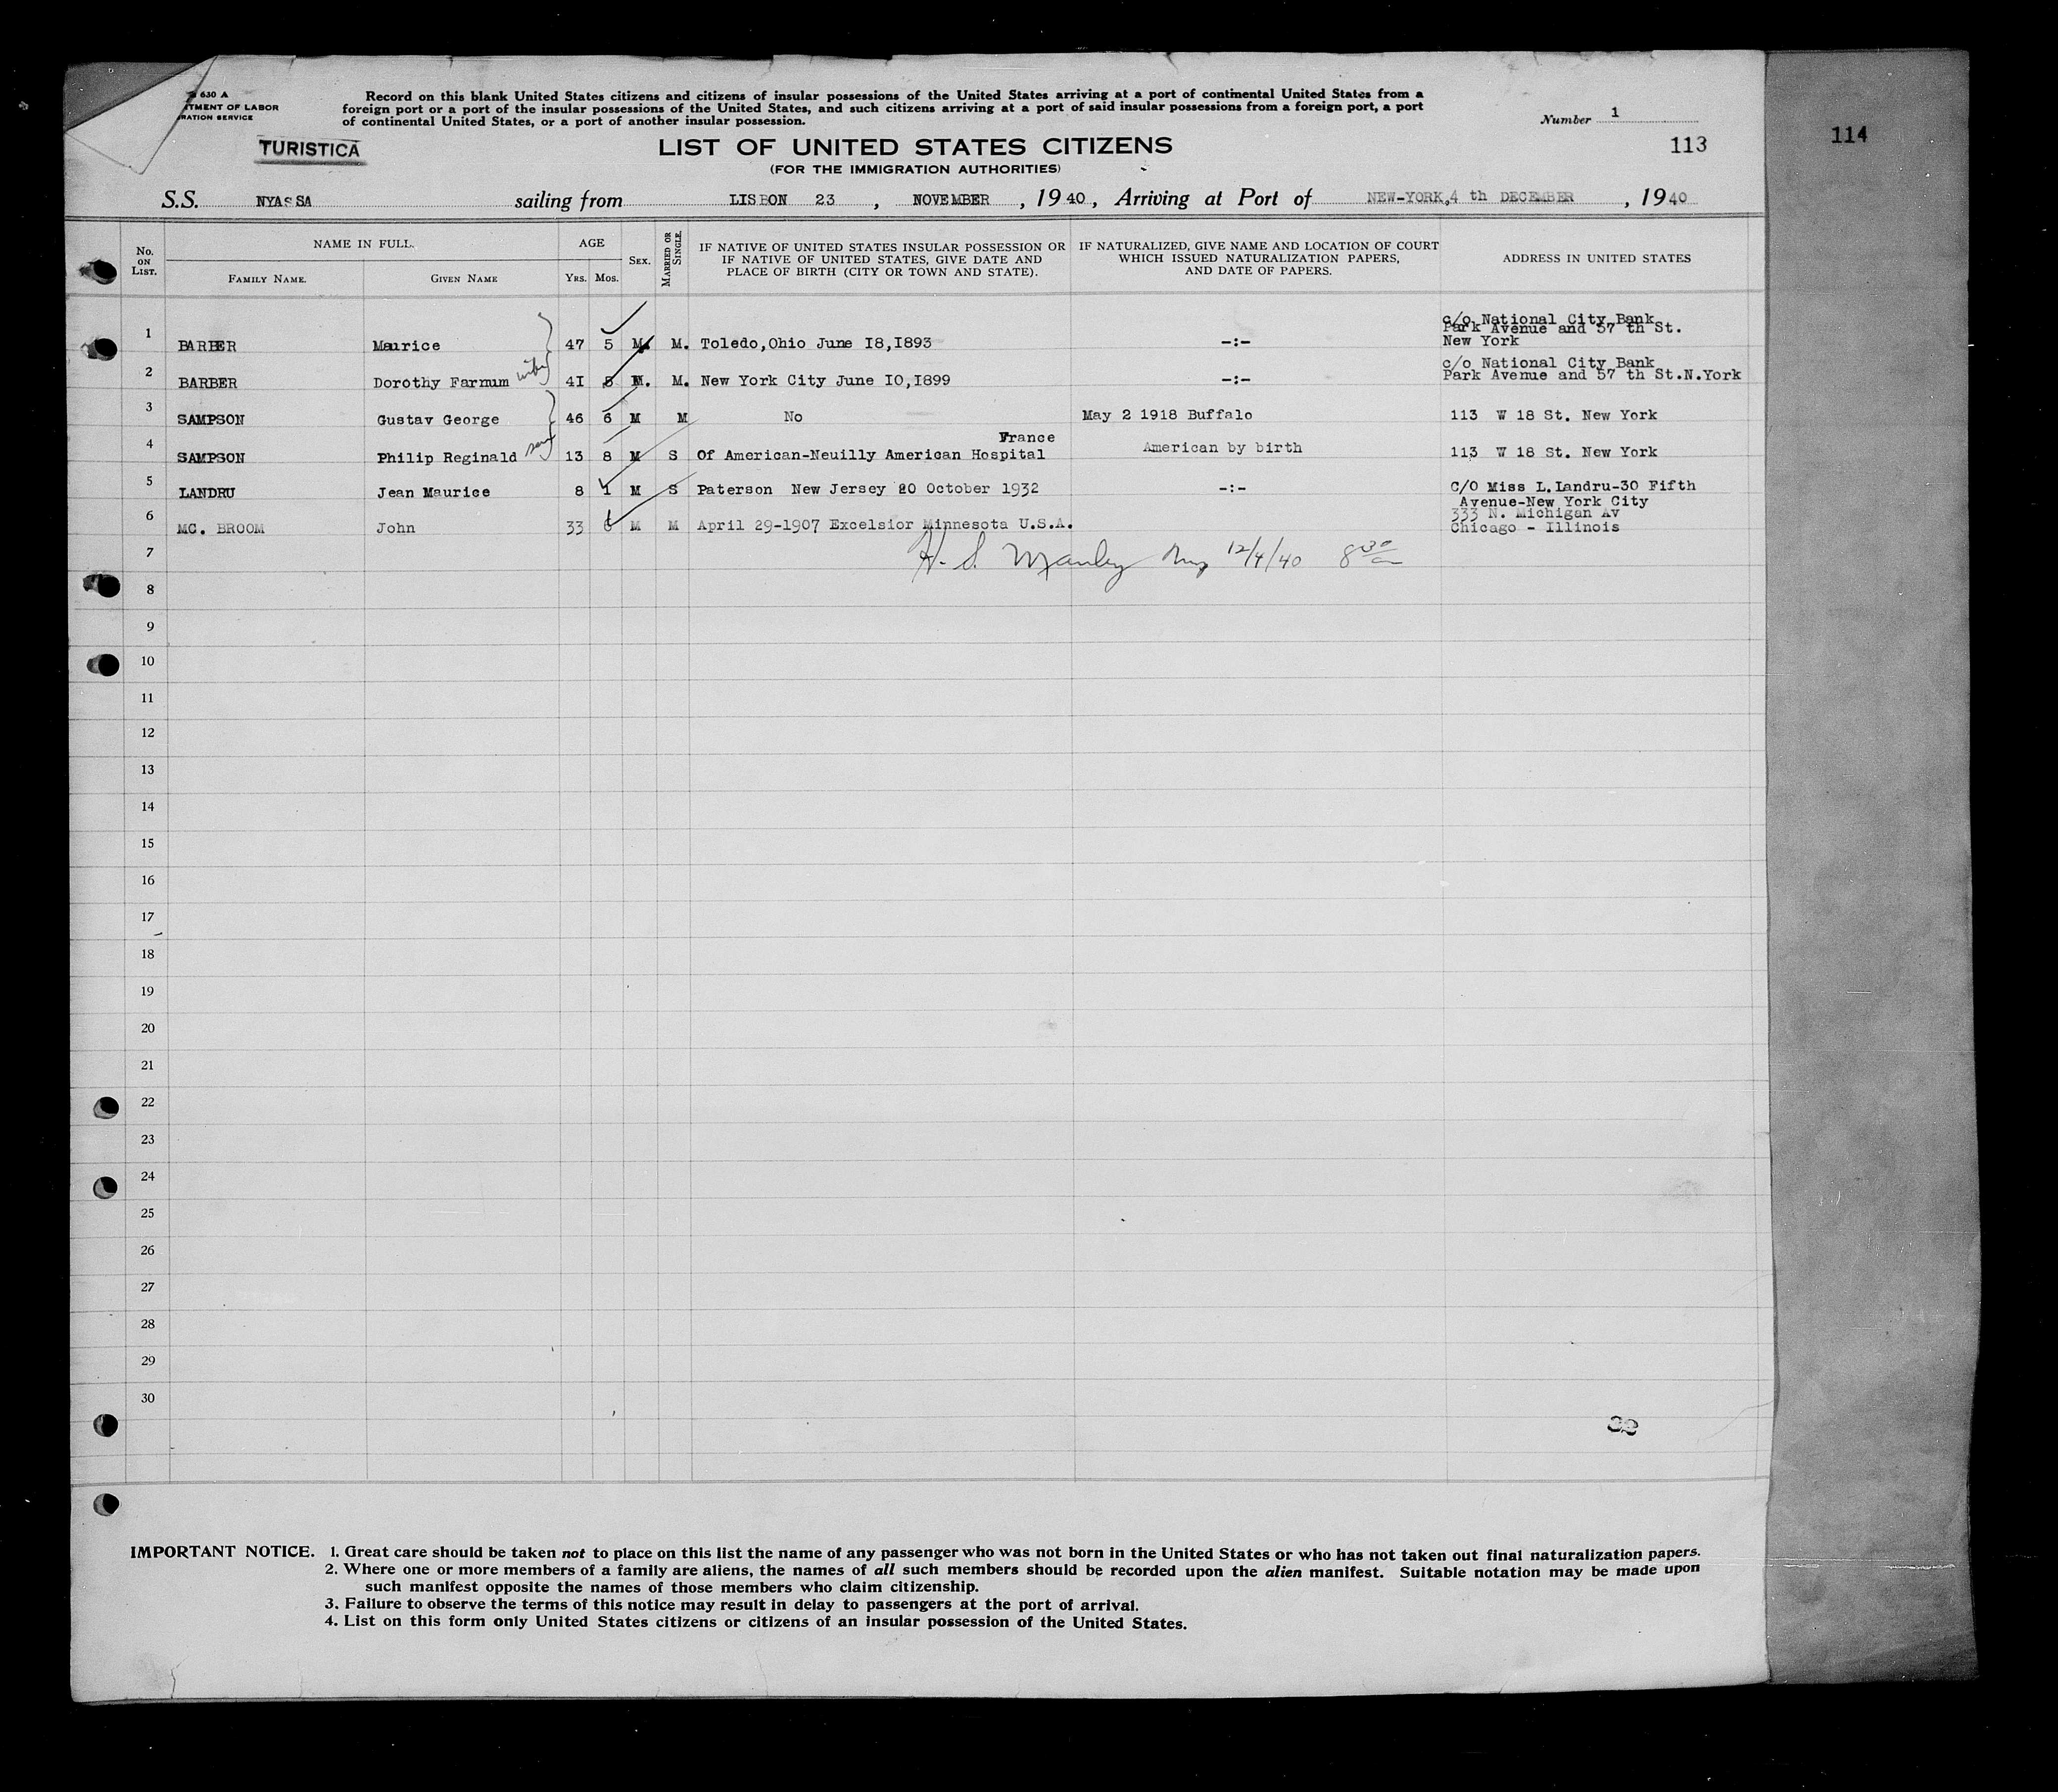 630 A
TMENT OF LABOR
RATION SERVICE
Record on this blank United States citizens and citizens of insular possessions of the United States arriving at a port of continental United States from a
foreign port or a port of the insular possessions of the United States, and such citizens arriving at a port of said insular possessions from a foreign port, a port
of continental United States, or a port of another insular possession.
Number 1
TURISTICA
LIST OF UNITED STATES CITIZENS
113
114
(FOR THE IMMIGRATION AUTHORITIES)
S.S. NYASSA sailing from LISBON 23 , NOVEMBER , 1940, Arriving at Port of NEW-YORK,4 th DECEMBER , 1940
No. ON LIST.
NAME IN FULL.
FAMILY NAME.
GIVEN NAME
AGE
YRS. MOS.
SEX.
MARRIED OR SINGLE.
IF NATIVE OF UNITED STATES INSULAR POSSESSION OR
IF NATIVE OF UNITED STATES, GIVE DATE AND
PLACE OF BIRTH (CITY OR TOWN AND STATE).
IF NATURALIZED, GIVE NAME AND LOCATION OF COURT
WHICH ISSUED NATURALIZATION PAPERS,
AND DATE OF PAPERS.
ADDRESS IN UNITED STATES
c/o National City Bank
Park Avenue and 57 th St.
1 BARBER Maurice 47 5 M. M. Toledo,Ohio June I8,I893 -:- New York
c/o National City Bank
2 BARBER Dorothy Farnum wife 4I M. New York City June IO,I899 -:- Park Avenue and 57 th St.N.York
3 SAMPSON Gustav George 46 6 M M No May 2 1918 Buffalo 113 W 18 St. New York
France
4 SAMPSON Philip Reginald son 13 8 M S Of American-Neuilly American Hospital American by birth 113 W 18 St. New York
5 LANDRU Jean Maurice 8 1 M S Paterson New Jersey 20 October 1932 -:- C/O Miss L.Landru-30 Fifth
Avenue-New York City
333 N. Michigan Av
6 MC. BROOM John 33 6 M M April 29-1907 Excelsior Minnesota U.S.A. Chicago - Illinois
7 H. S. Manley 12/4/40 8 30
8
9
10
11
12
13
14
15
16
17
18
19
20
21
22
23
24
25
26
27
28
29
30
IMPORTANT NOTICE. 1. Great care should be taken not to place on this list the name of any passenger who was not born in the United States or who has not taken out final naturalization papers.
2. Where one or more members of a family are aliens, the names of all such members should be recorded upon the alien manifest. Suitable notation may be made upon
such manifest opposite the names of those members who claim citizenship.
3. Failure to observe the terms of this notice may result in delay to passengers at the port of arrival.
4. List on this form only United States citizens or citizens of an insular possession of the United States.